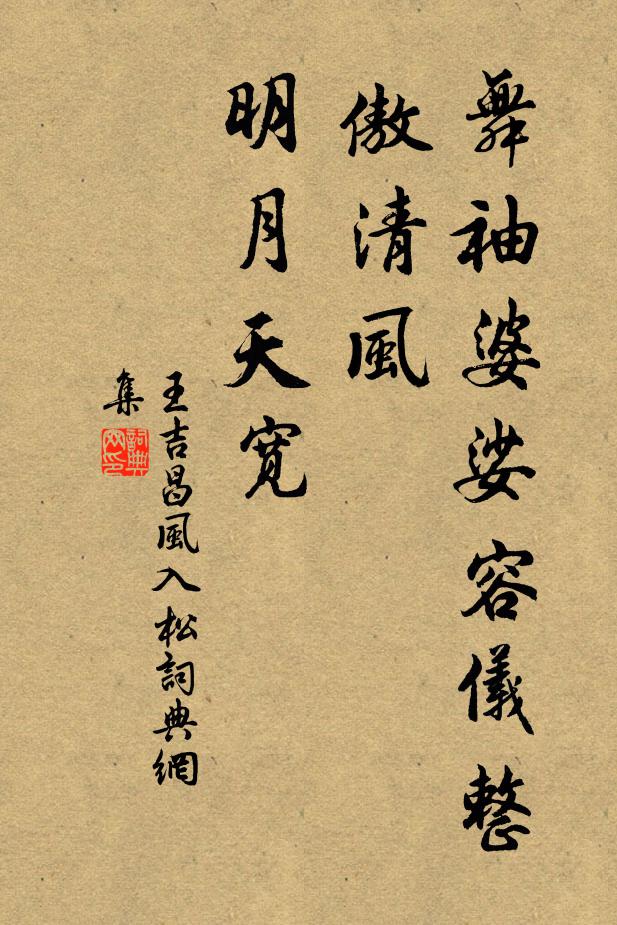 舞袖婆娑容儀整
傲清風
明月天寬
王吉昌風入松詞典網
集
詞典
网印